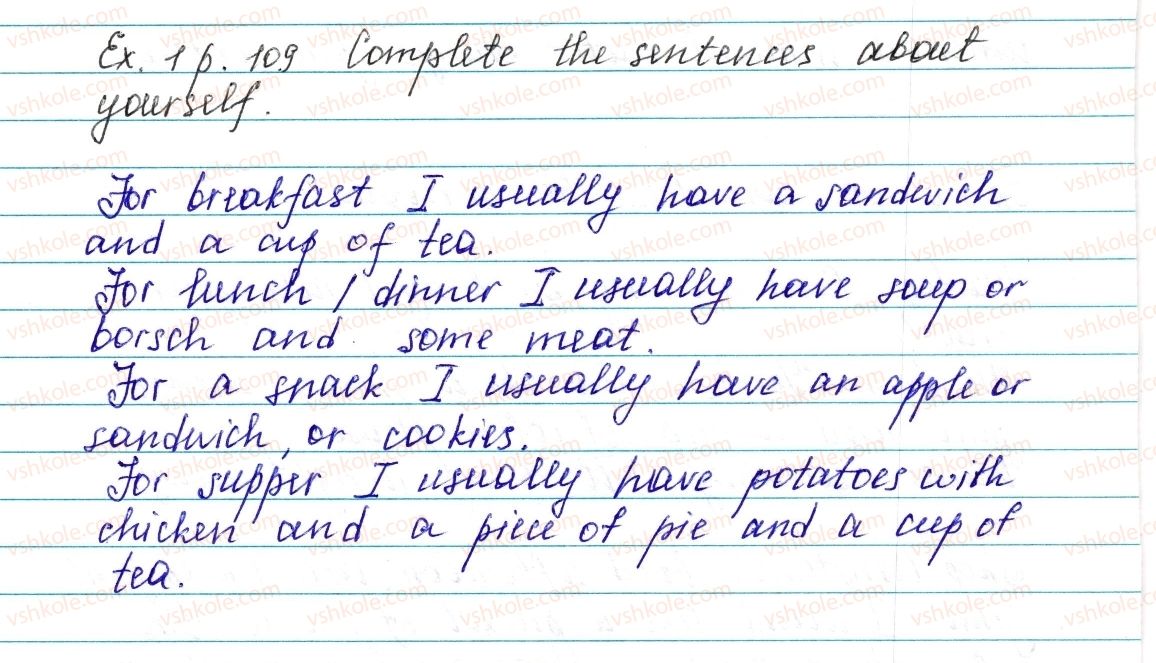 Ex. 1 p. 109 Complete the sentences about
yourself.
For breakfast I usually have a sandwich
and a cup of tea.
For lunch / dinner I usually have soup or
borsch and some meat.
For a snack I usually have an apple or
sandwich, or cookies.
For supper I usually have potatoes with
chicken and a piece of pie and a cup of
tea.